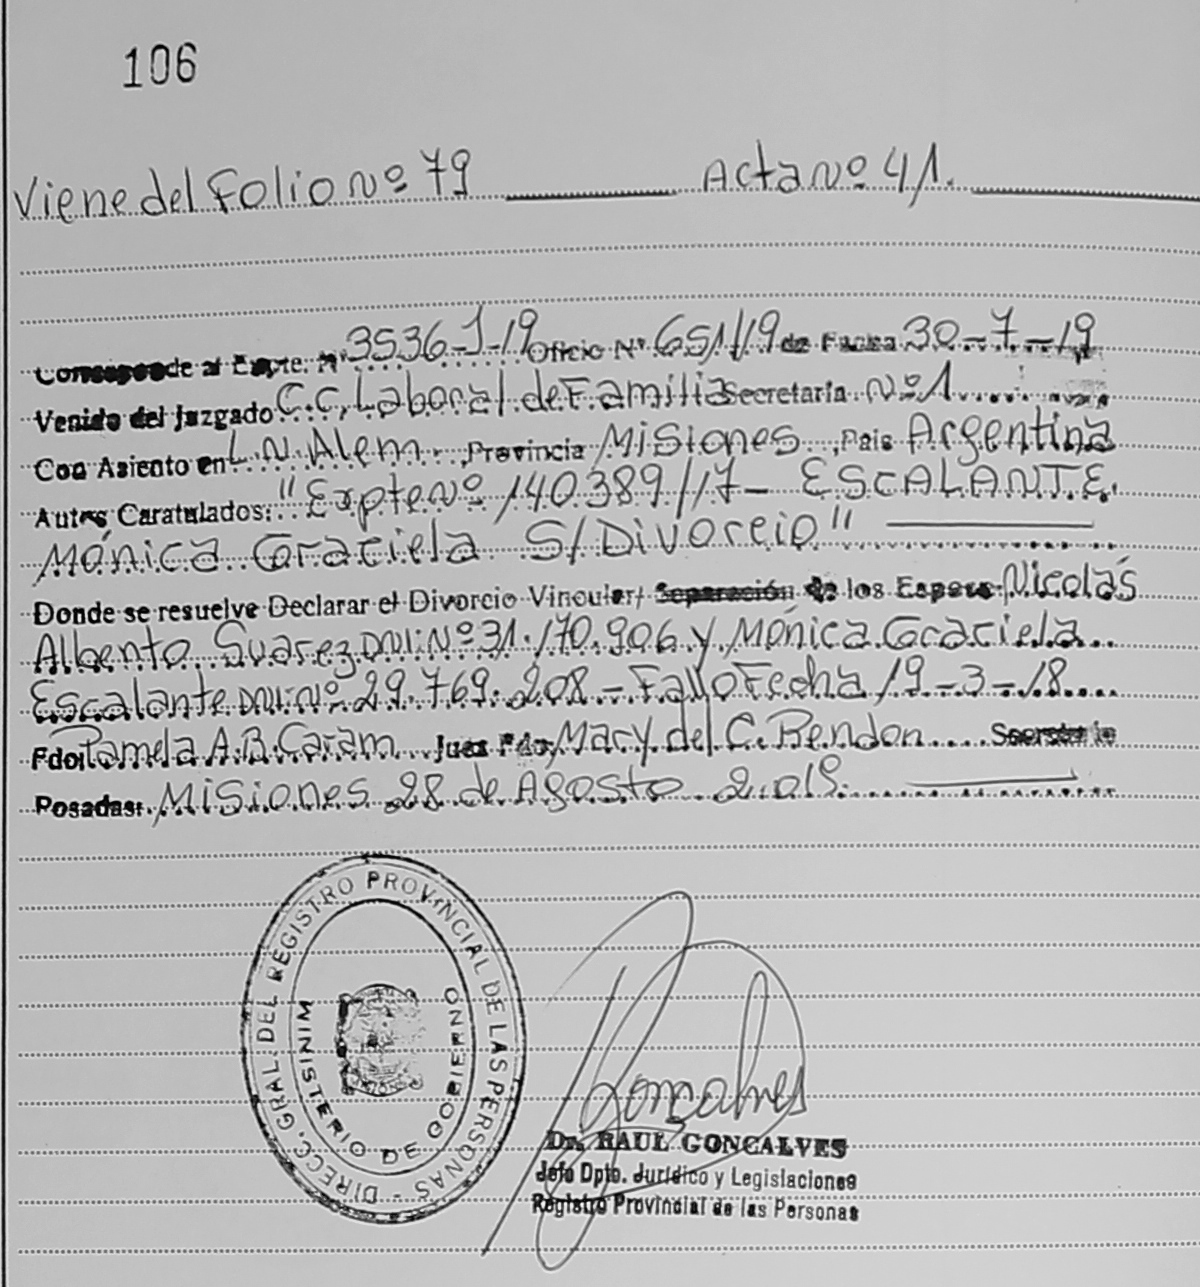 106
Viene del Folio Nº 79 Acta Nº 41.
Corresponde al Expte. Nº 3536-J-19 Oficio Nº 651/19 de Fecha 30-7-19
Venido del Juzgado C.C, Laboral de Familia Secretaría Nº 1
Con Asiento en L.N. Alem, Provincia Misiones, Pais Argentina
Autos Caratulados: "Expte Nº 140.389/17- ESCALANTE
Mónica Graciela S/ Divorcio"
Donde se resuelve Declarar el Divorcio Vincular/ Separación de los Esposos Nicolás
Alberto Suarez DNI: Nº 31.170.906 y Mónica Graciela
Escalante DNI: Nº 29.769.208 - Fallo Fecha 19-3-18
Fdo: Pamela A.B. Caram Juez Fdo: Mary del C. Rendon Secretario
Posadas: Misiones 28 de Agosto 2.019.
DIRECC. GRAL. DEL REGISTRO PROVINCIAL DE LAS PERSONAS -
MINISTERIO DE GOBIERNO
Goncalves
Dr. RAUL GONCALVES
Jefe Dpto. Jurídico y Legislaciones
Registro Provincial de las Personas